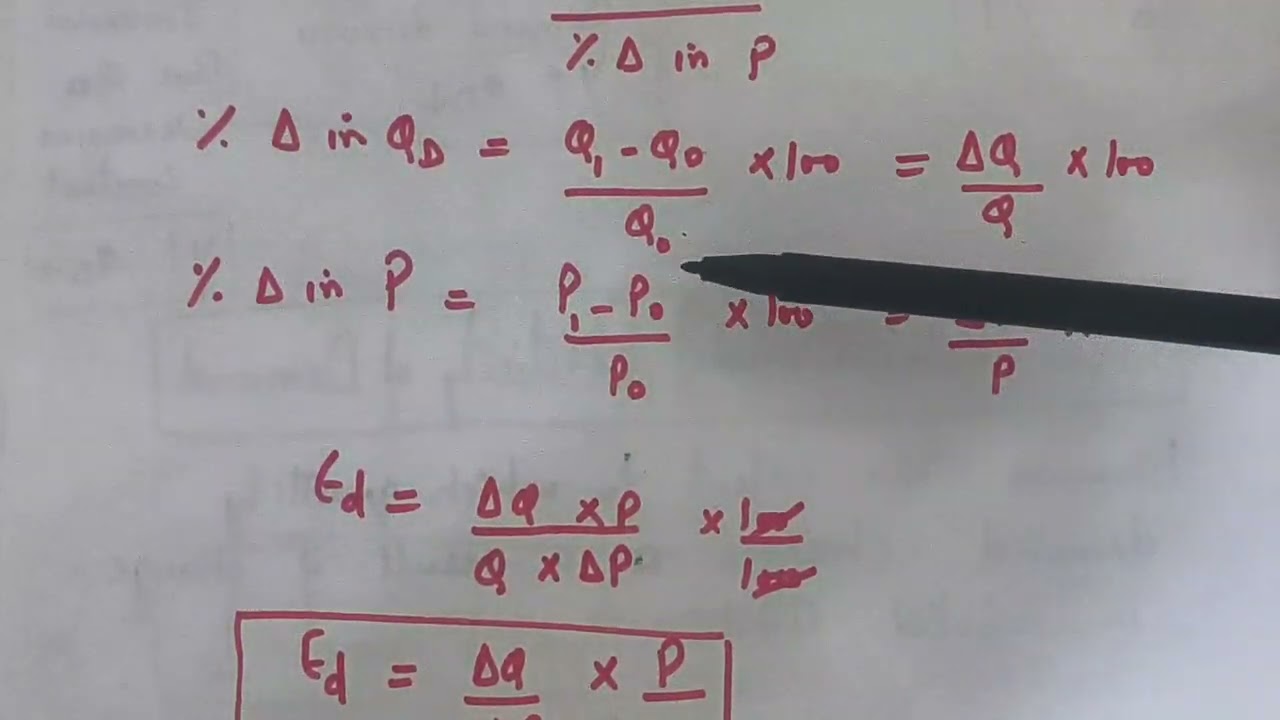 % Δ in P
% Δ in Q_D = (Q₁ - Q₀)/Q₀ × 100 = ΔQ/Q × 100
% Δ in P = (P₁ - P₀)/P₀ × 100 = /P
Ed = (ΔQ × P)/(Q × ΔP) × 100/100
Ed = ΔQ/ × P/